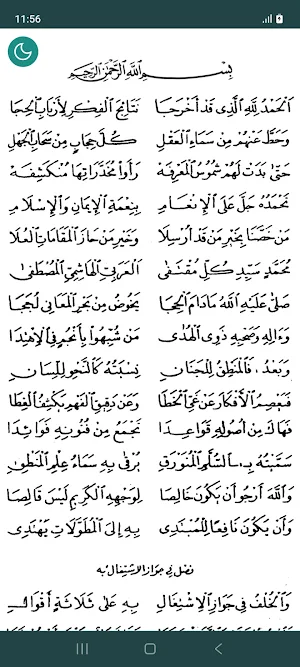 11:56
بِسْمِ اللَّهِ الرَّحْمَنِ الرَّحِيمِ
الْحَمْدُ لِلَّهِ الَّذِي قَدْ أَخْرَجَا نَتَائِجَ الْفِكْرِ لِأَرْبَابِ الْحِجَا
وَحَطَّ عَنْهُمْ مِنْ سَمَاءِ الْعَقْلِ كُلَّ حِجَابٍ مِنْ سَحَابِ الْجَهْلِ
حَتَّى بَدَتْ لَهُمْ شُمُوسُ الْمَعْرِفَةْ رَأَوْا مُخَدَّرَاتِهَا مُنْكَشِفَةْ
نَحْمَدُهُ جَلَّ عَلَى الْإِنْعَامِ بِنِعْمَةِ الْإِيمَانِ وَالْإِسْلَامِ
مَنْ خَصَّنَا بِخَيْرِ مَنْ قَدْ أُرْسِلَا وَخَيْرِ مَنْ حَازَ الْمَقَامَاتِ الْعُلَا
مُحَمَّدٍ سَيِّدِ كُلِّ مُقْتَفَى الْعَرَبِيِّ الْهَاشِمِيِّ الْمُصْطَفَى
صَلَّى عَلَيْهِ اللَّهُ مَا دَامَ الْحِجَا يَخُوضُ مِنْ بَحْرِ الْمَعَانِي لُجَجَا
وَآلِهِ وَصَحْبِهِ ذَوِي الْهُدَى مَنْ شُبِّهُوا بِأَنْجُمٍ فِي الْإِهْتِدَا
وَبَعْدُ فَالْمَنْطِقُ لِلْجَنَانِ نِسْبَتُهُ كَالنَّحْوِ لِلِّسَانِ
فَيَعْصِمُ الْأَفْكَارَ عَنْ غَيِّ الْخَطَا وَعَنْ دَقِيقِ الْفَهْمِ يَكْشِفُ الْغِطَا
فَهَاكَ مِنْ أُصُولِهِ قَوَاعِدَا تَجْمَعُ مِنْ فُنُونِهِ فَوَائِدَا
سَمَّيْتُهُ بِالسُّلَّمِ الْمُنَوْرَقِ يُرْقَى بِهِ سَمَاءُ عِلْمِ الْمَنْطِقِ
وَاللَّهَ أَرْجُو أَنْ يَكُونَ خَالِصَا لِوَجْهِهِ الْكَرِيمِ لَيْسَ قَالِصَا
وَأَنْ يَكُونَ نَافِعًا لِلْمُبْتَدِي بِهِ إِلَى الْمُطَوَّلَاتِ يَهْتَدِي
فصل في جواز الاشتغال به
وَالْخُلْفُ فِي جَوَازِ الْاِشْتِغَالِ بِهِ عَلَى ثَلَاثَةٍ أَقْوَالِ